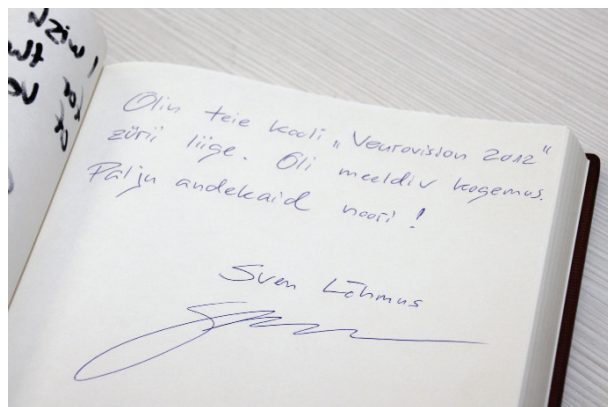 Olin teie kooli „Veurovision 2012“
zürii liige. Oli meeldiv kogemus.
Palju andekaid noori!
Sven Lõhmus